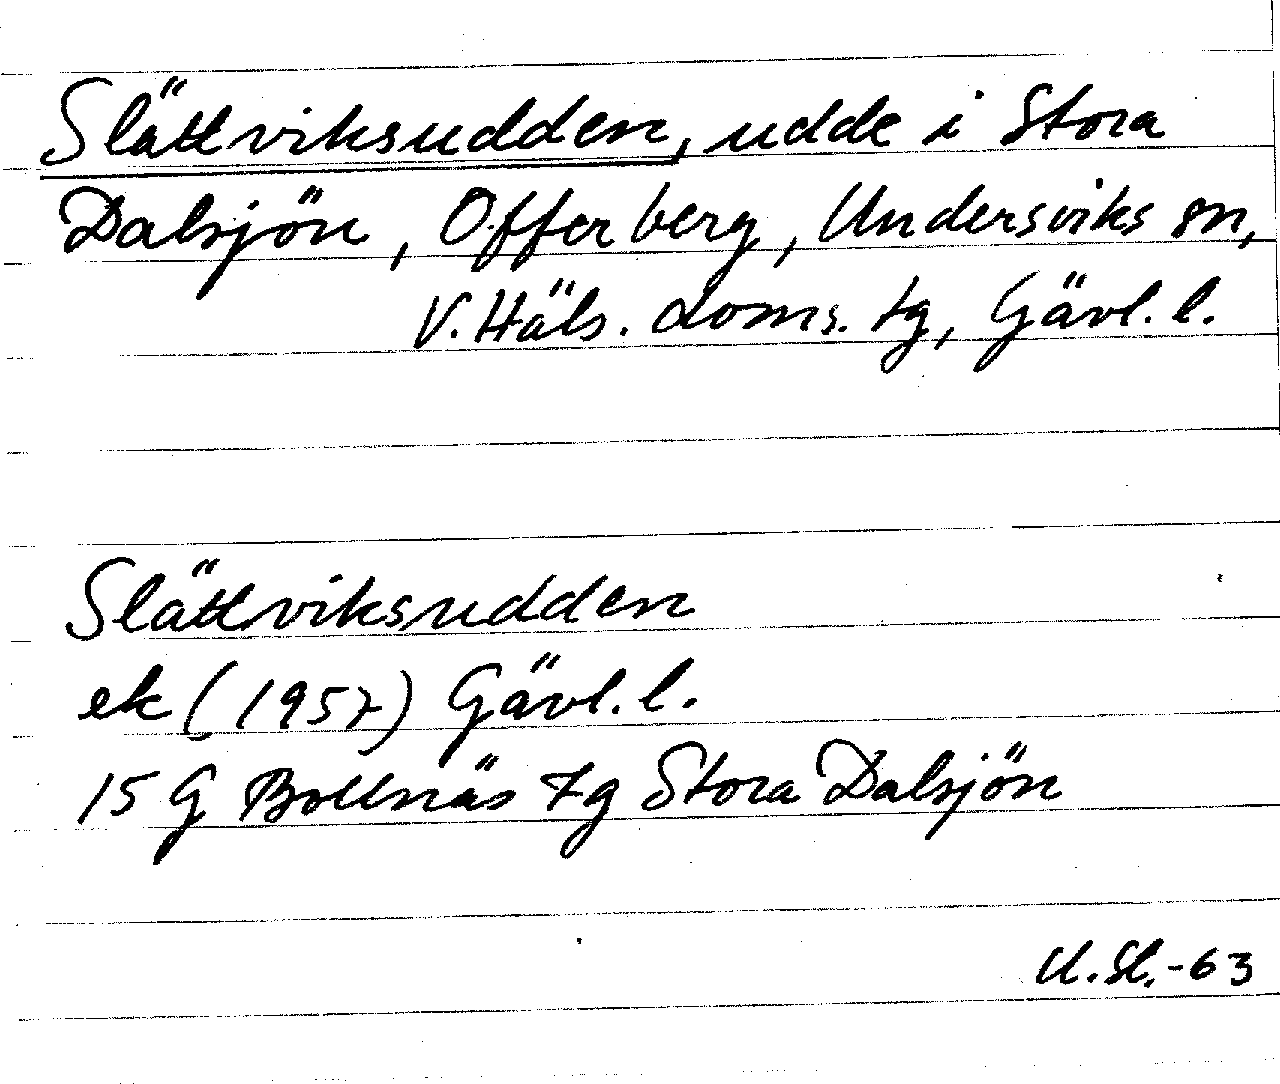 Slättviksudden, udde i Stora
Dalsjön, Offerberg, Undersviks sn,
V. Häls. doms. tg, Gävl. l.
Slättviksudden
ek (1957) Gävl. l.
15 G Bollnäs tg Stora Dalsjön
U. Sl. -63